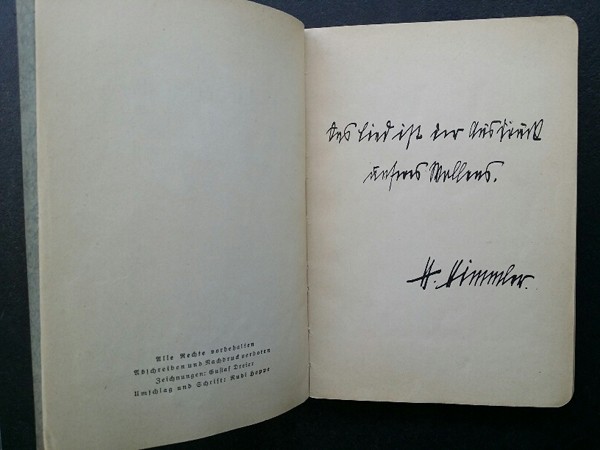 Alle Rechte vorbehalten
Abschreiben und Nachdruck verboten
Zeichnungen: Gustaf Dreier
Umschlag und Schrift: Rudi Hoppe
Das Lied ist der Ausdruck
unseres Wollens.
H. Himmler.